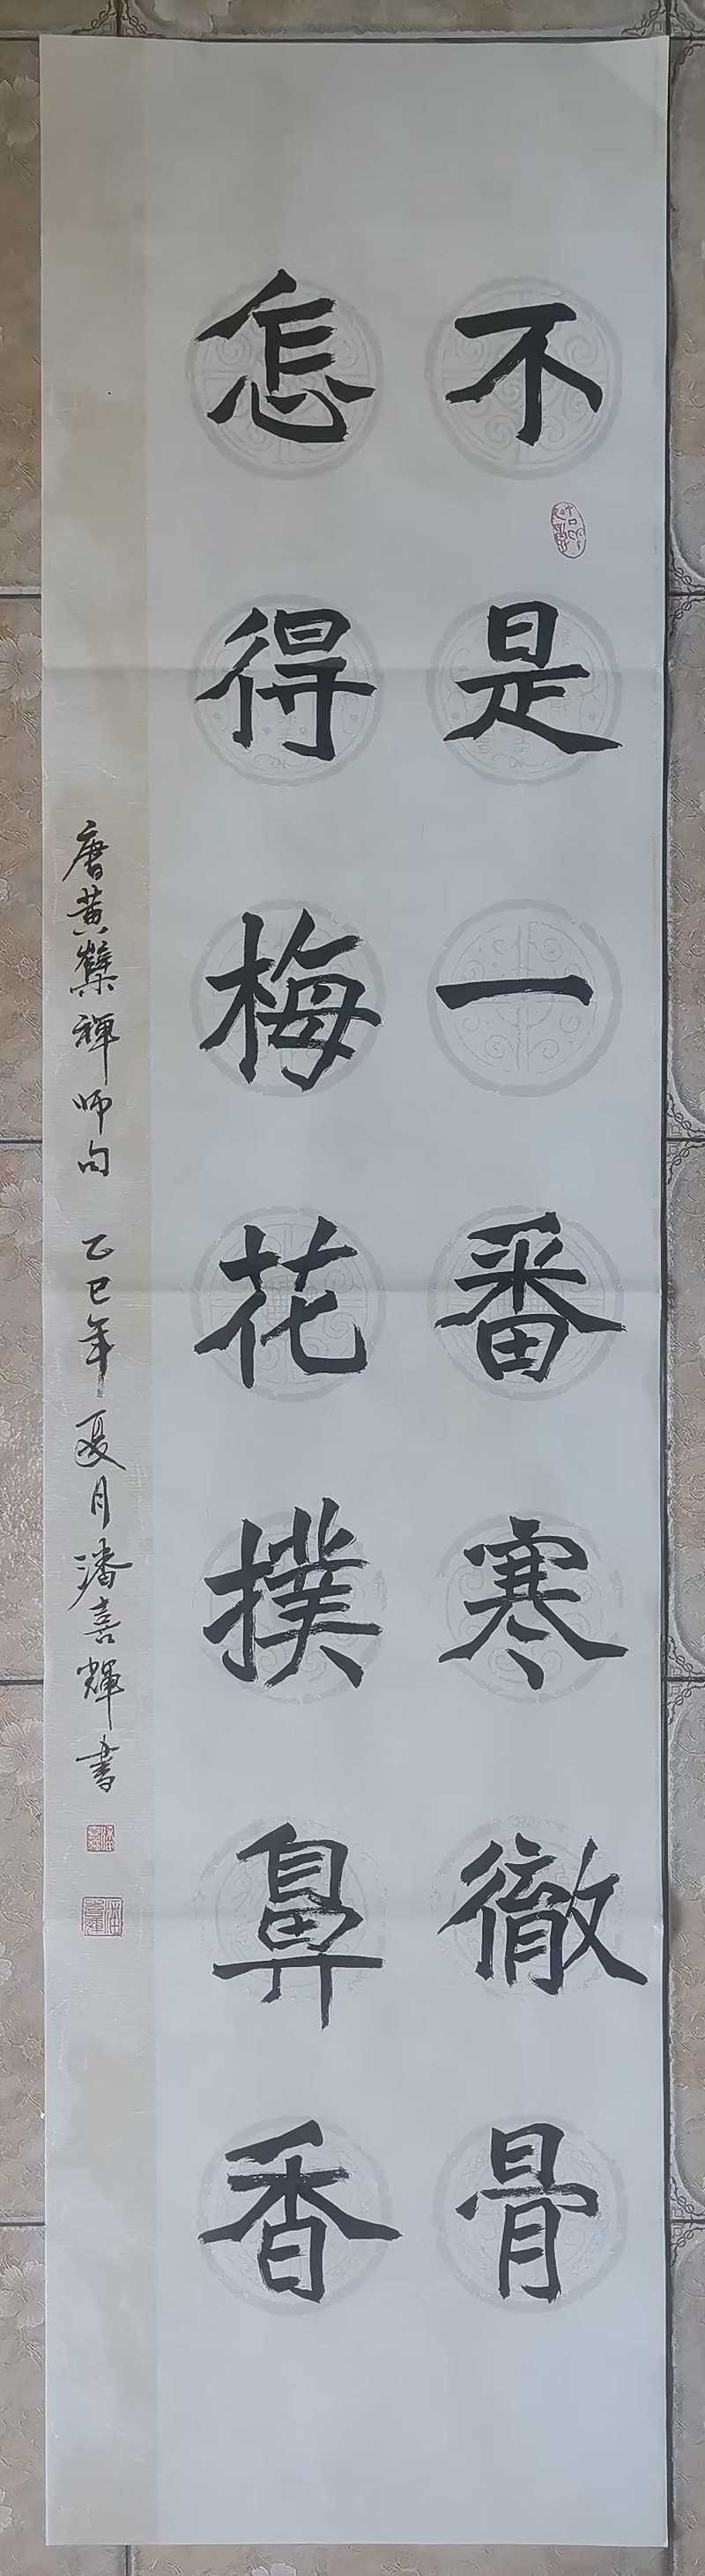 不是一番寒徹骨
怎得梅花撲鼻香
唐黄蘗禅师句 乙巳年夏月潘喜輝书